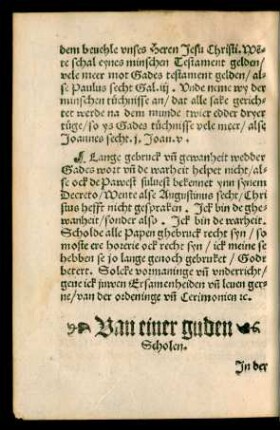 dem beuehle vnses Heren Jesu Christi. We-
te schal eynes minschen Testament gelden/
vele meer mot Gades testament gelden/ al-
se Paulus secht Gal. iij. Vnde neme wy der
minschen tüchnisse an/ dat alle sake gerich-
tet werde na dem munde twier edder dryer
tüge/ so ys Gades tüchnisse vele meer/ alse
Joannes secht. j. Joan. v.
¶ Lange gebruck vn̄ gewanheit wedder
Gades wort vn̄ de warheit helpet nicht/ al-
se ock de Pawest süluest bekennet ynn synem
Decreto/ Wente alse Augustinus secht/ Chri
stus hefft nicht gespraken. Ick bin de ghe-
wanheit/ sonder also. Ick bin de warheit.
Scholde alle Papen ghebruck recht syn/ so
moste ere horerie ock recht syn/ ick meine se
hebben se jo lange genoch gebruket/ Godt
betert. Solcke vormaninge vn̄ vnderricht/
geue ick juwen Ersamenheiden vn̄ leuen ger-
ne/ van der ordeninge vn̄ Cerimonien ⁊c.
Van einer guden
Scholen.
In der